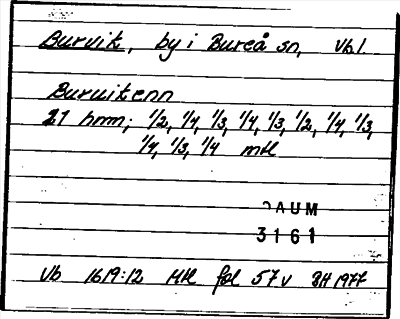 Burvik, by i Bureå sn, Vbl.
Buruikenn
21 hmn; 1/2, 1/4, 1/3, 1/4, 1/3, 1/2, 1/4, 1/3,
1/4, 1/3, 1/4 mtl
DAUM
3161
Vb 1619:12 Mtl fol 57v BH 1977